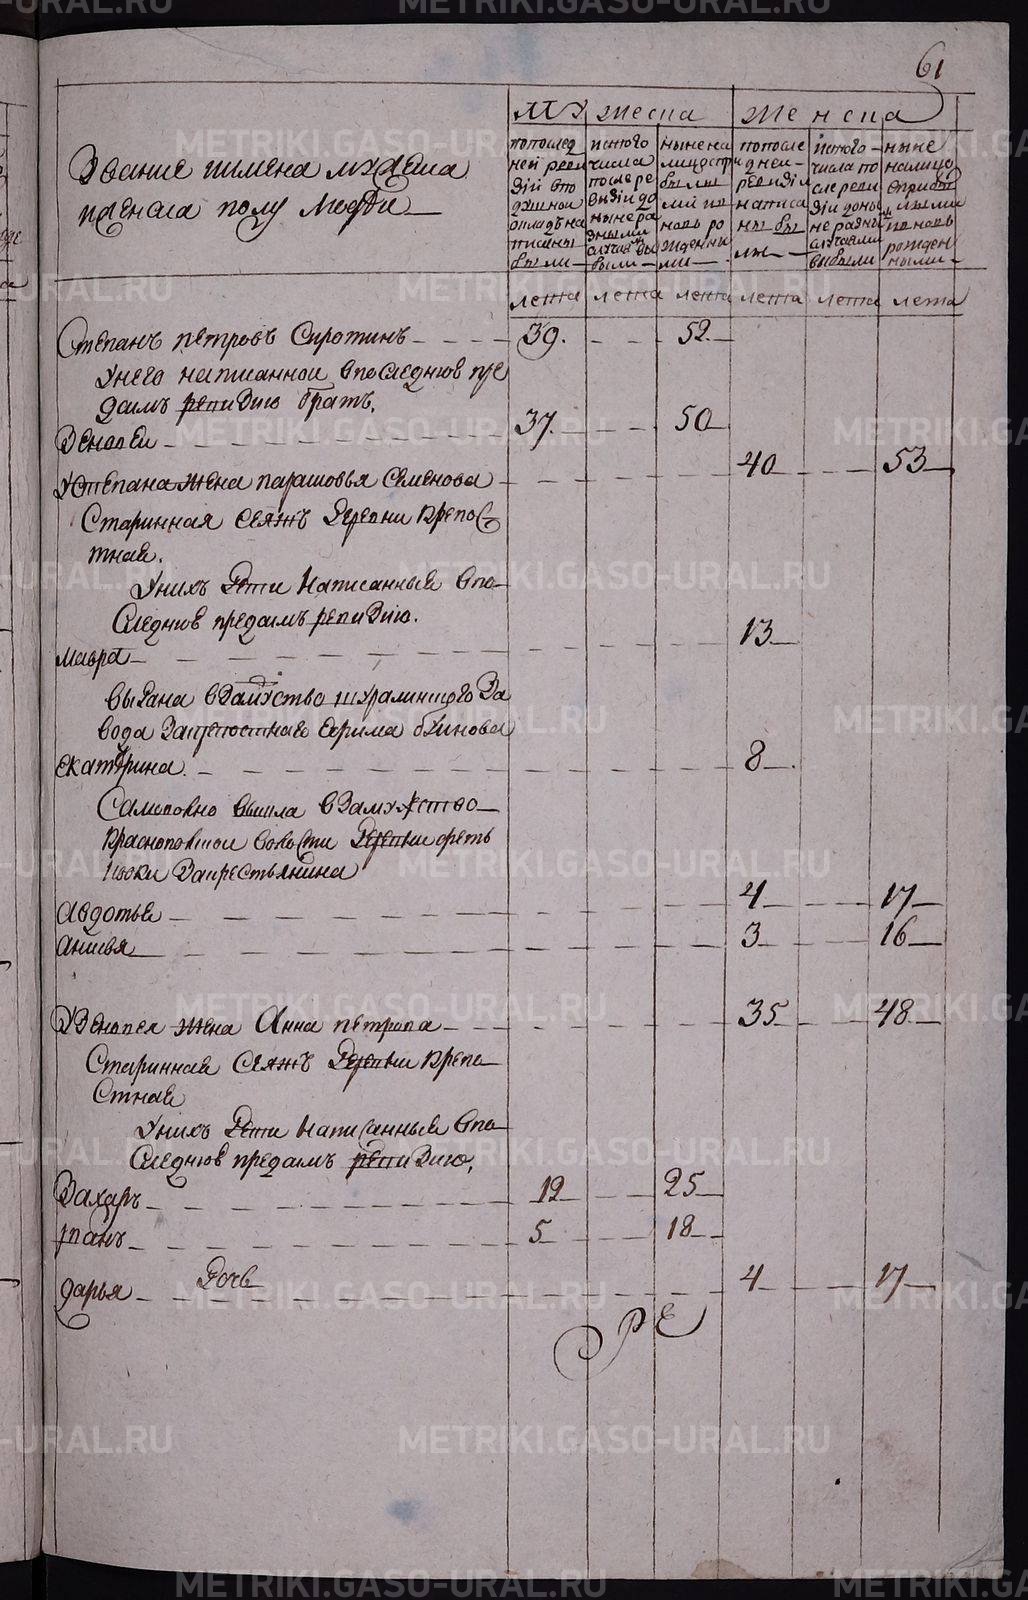 61
Звание и имена мужеска
и женска полу людей
Мужеска
Женска
по послед
ней реви
зіи в по
душной
оклад на
писаны
были
ис того
числа
после ре
визіи до
ныне ра
зными
случаи вы
были
ныне на
лицо с при
былы
ми и в
новь ро
жденны
ми
по после
дней
ревизіи
написа
ны бы
ли
ис того
числа по
сле реви
зіи доны
не разны
случаями
выбыли
ныне
на лицо
с прибы
лыми
и вновь
рожден
ными
лета лета лета лета лета лета
Степанъ петровъ Сиротинъ 39. 52
У него написанной в последнюю пре
д симъ ревизию братъ,
Зеновей 37. 50
У Степана жена парасковья Семенова 40 53
Старинная сеяжъ деревни крепос
тная.
У нихъ дети написанные в по
следнюю пред симъ ревизию.
Мавра 13
выдана в замужство шуралинского за
вода за крепостнаго
Екатерина 8
Самовольно вышла в замужство
краснопольской волости деревни
за крестьянина
Авдотья 4 17
Анисья 3 16
У Зеновея жена Анна петрова 35 48
Старинная сеяжъ деревни крепо
стная
У нихъ дети написанные в по
следнюю пред симъ ревизию,
Захаръ 12 25
5 18
дарья дочь 4 17
METRIKI.GASO-URAL.RU